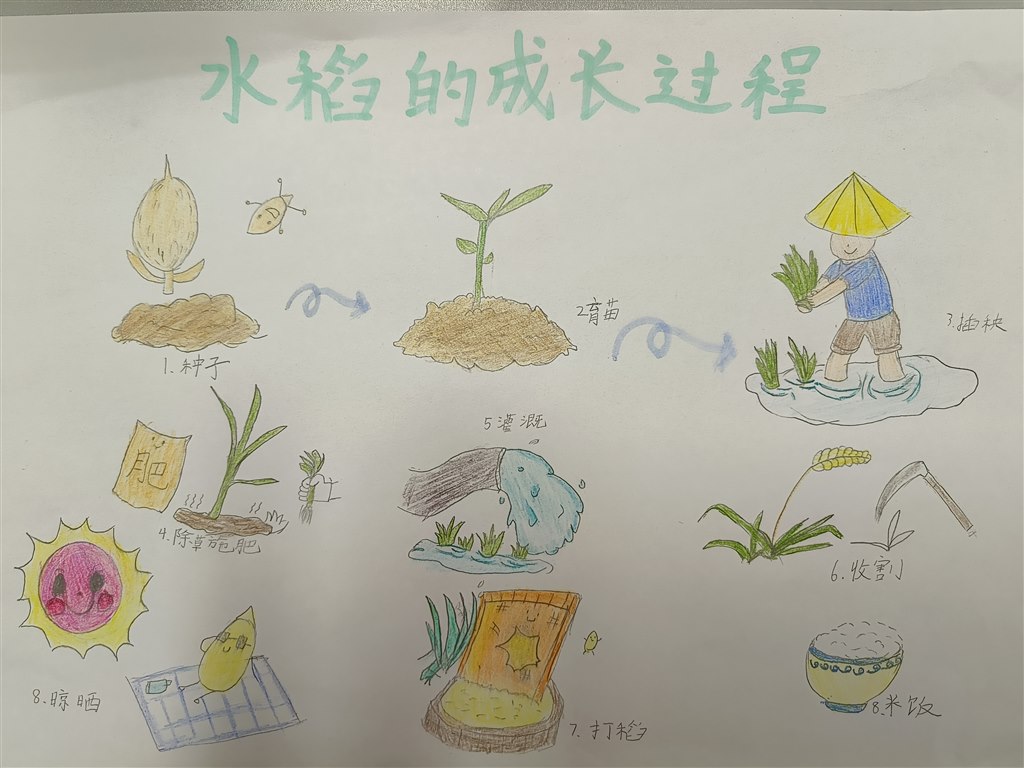 水稻的成长过程
1.种子
2育苗
3.插秧
肥
4.除草施肥
5灌溉
6.收割
7.打稻
8.晾晒
8.米饭